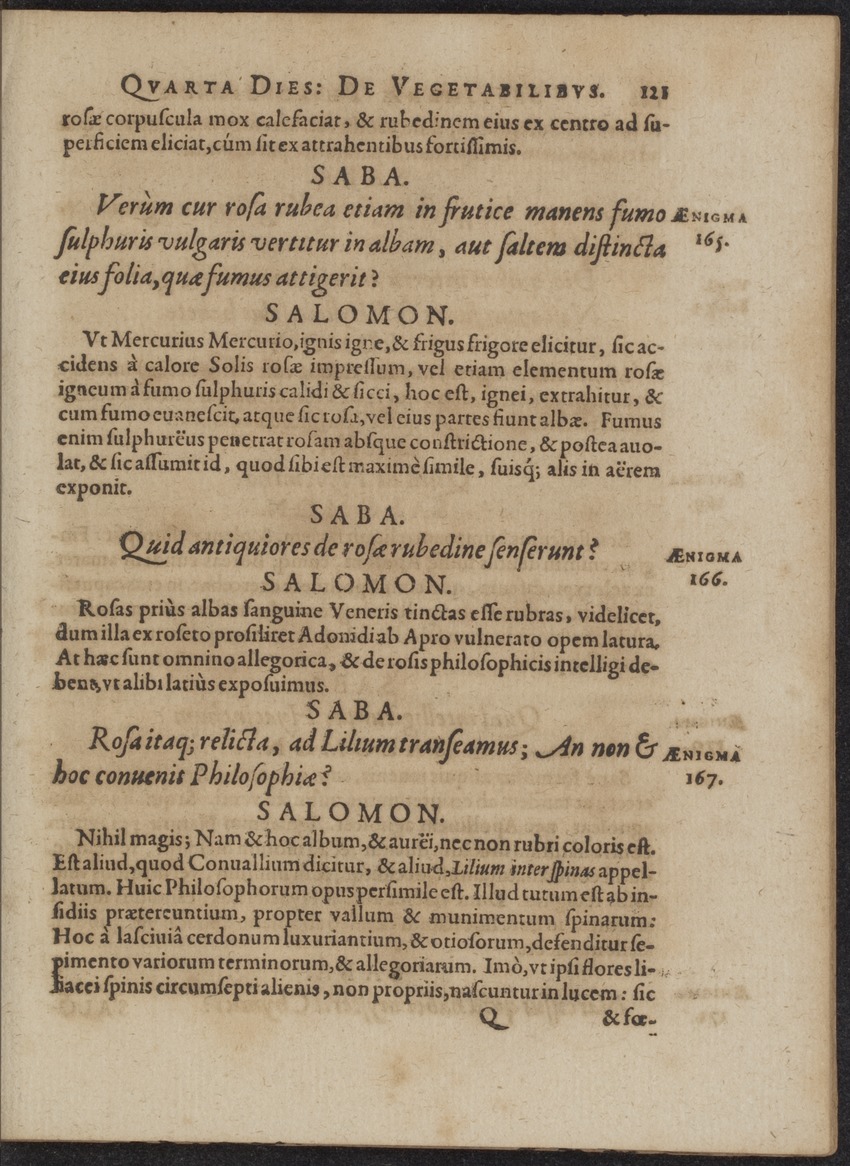 QVARTA DIES: DE VEGETABILIBVS. 121
roſæ corpuſcula mox calefaciat, & rubedinem eius ex centro ad ſu-
perficiem eliciat, cúm ſit ex attrahentibus fortiſſimis.
SABA.
Verùm cur roſa rubea etiam in frutice manens fumo
ÆNIGMA
165.
ſulphuris vulgaris vertitur in albam, aut ſaltem diſtincta
eius folia, quæ fumus attigerit?
SALOMON.
Vt Mercurius Mercurio, ignis igne, & frigus frigore elicitur, ſic ac-
cidens à calore Solis roſæ impreſſum, vel etiam elementum roſæ
igneum à fumo ſulphuris calidi & ſicci, hoc eſt, ignei, extrahitur, &
cum fumo euaneſcit, atque ſic roſa, vel eius partes fiunt albæ. Fumus
enim ſulphurëus penetrat roſam abſque conſtrictione, & poſtea auo-
lat, & ſic aſſumit id, quod ſibi eſt maximè ſimile, ſuisq́; alis in aërem
exponit.
SABA.
Quid antiquiores de roſæ rubedine ſenſerunt?
ÆNIGMA
166.
SALOMON.
Roſas priùs albas ſanguine Veneris tinctas eſſe rubras, videlicet,
dum illa ex roſeto proſiliret Adonidi ab Apro vulnerato opem latura.
At hæc ſunt omnino allegorica, & de roſis philoſophicis intelligi de-
bent, vt alibi latiùs expoſuimus.
SABA.
Roſa itaq; relicta, ad Lilium tranſeamus; An non &
ÆNIGMA
167.
hoc conuenit Philoſophiæ?
SALOMON.
Nihil magis; Nam & hoc album, & aurëi, nec non rubri coloris eſt.
Eſt aliud, quod Conuallium dicitur, & aliud, Lilium inter ſpinas appel-
latum. Huic Philoſophorum opus perſimile eſt. Illud tutum eſt ab in-
ſidiis prætereuntium, propter vallum & munimentum ſpinarum:
Hoc à laſciuiâ cerdonum luxuriantium, & otioſorum, defenditur ſe-
pimento variorum terminorum, & allegoriarum. Imò, vt ipſi flores li-
liacei ſpinis circumſepti alienis, non propriis, naſcuntur in lucem: ſic
Q & fœ-